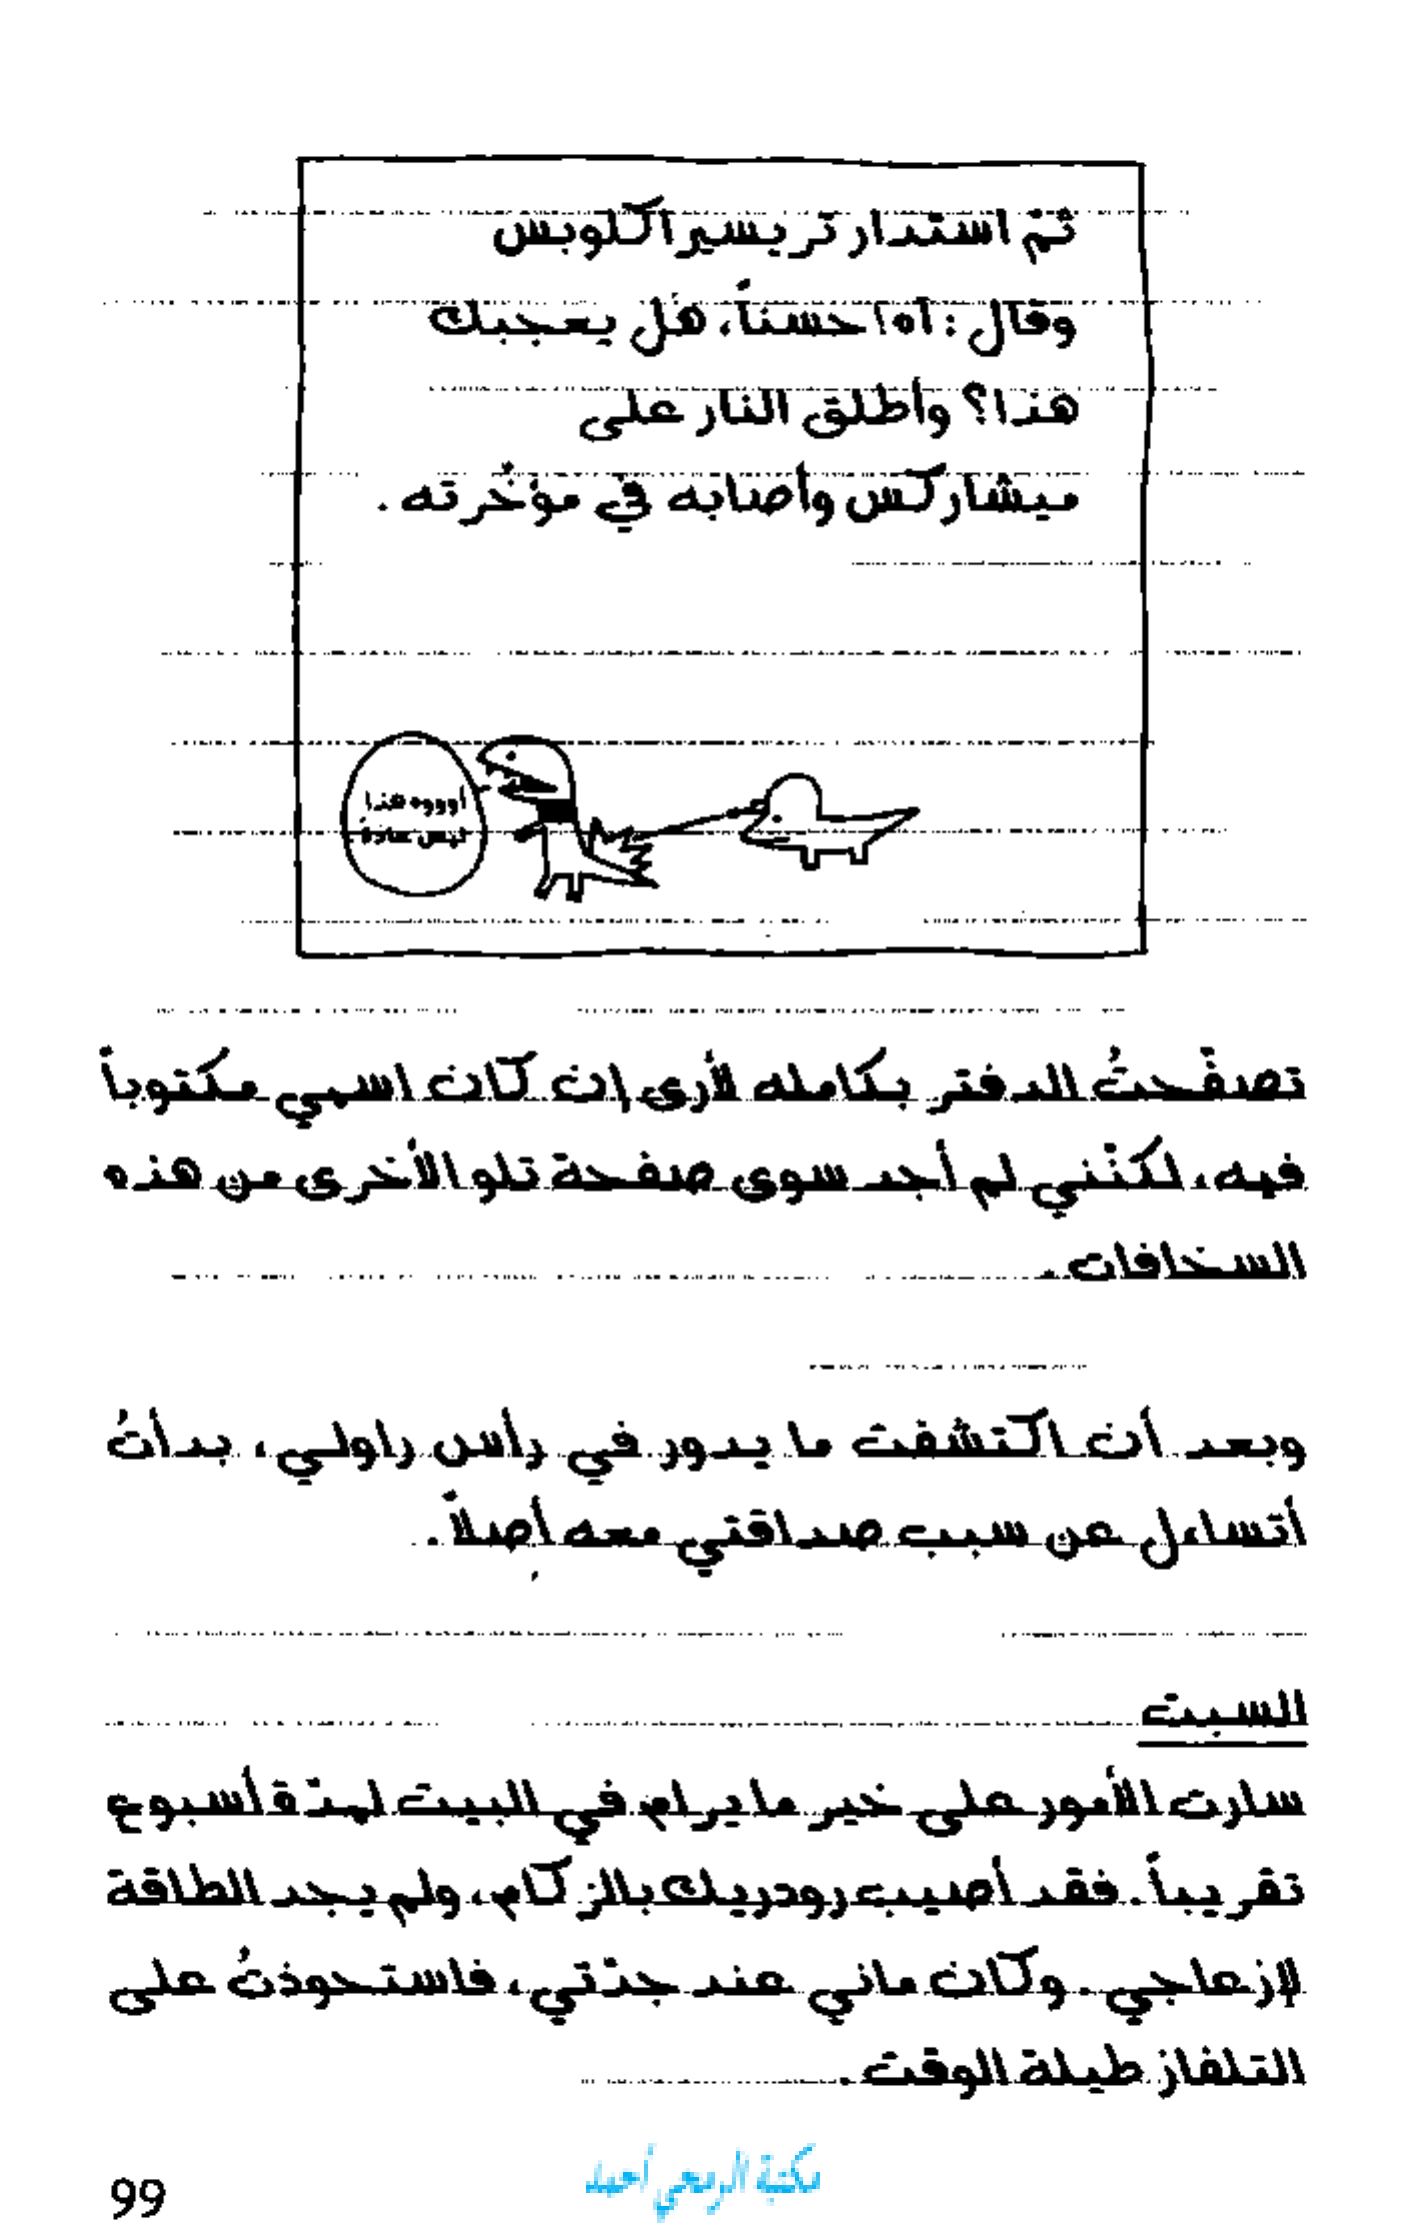 ثمّ استدار تريسيراكلوبس
وقال: آه! حسناً، هل يعجبك
هذا؟ وأطلق النار على
ميشاركس وأصابه في مؤخّرته.
أوووه هذا
ليس عادة
تصفّحتُ الدفتر بكامله لأرى إن كان اسمي مكتوباً
فيه، لكنّني لم أجد سوى صفحة تلو الأخرى من هذه
السخافات.
وبعد أن اكتشفت ما يدور في رأس راولي، بدأتُ
أتساءل عن سبب صداقتي معه أصلاً.
السبت
سارت الأمور على خير ما يرام في البيت لمدّة أسبوع
تقريباً. فقد أصيب رودريك بالزكام، ولم يجد الطاقة
لإزعاجي. وكان ماني عند جدّتي، فاستحوذتُ على
التلفاز طيلة الوقت.
مكتبة الرمحي أحمد
99